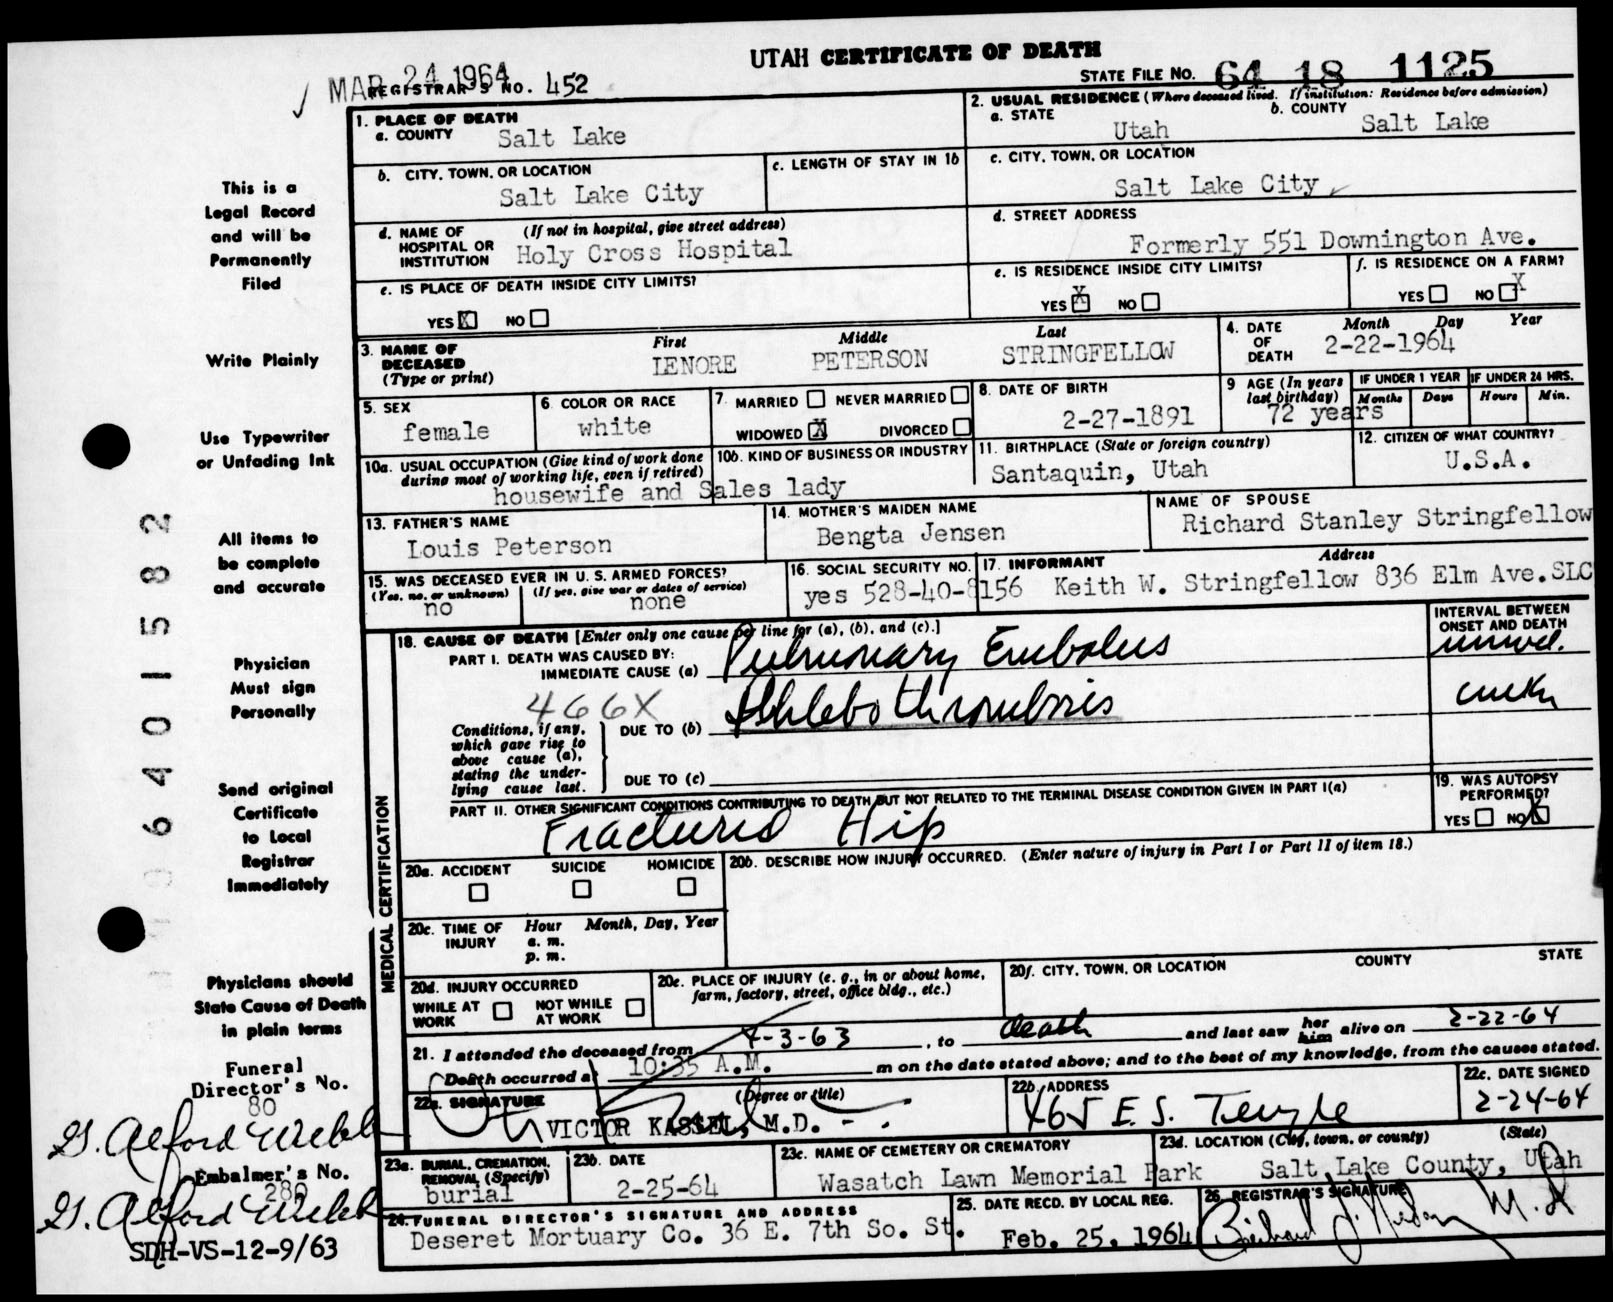 UTAH CERTIFICATE OF DEATH
MAR 24 1964
REGISTRAR'S NO. 452
STATE FILE NO. 64 18 1125
1. PLACE OF DEATH
a. COUNTY Salt Lake
2. USUAL RESIDENCE (Where deceased lived. If institution: Residence before admission)
a. STATE Utah b. COUNTY Salt Lake
b. CITY, TOWN, OR LOCATION Salt Lake City
c. LENGTH OF STAY IN 1b
c. CITY, TOWN, OR LOCATION Salt Lake City
d. NAME OF HOSPITAL OR INSTITUTION (If not in hospital, give street address) Holy Cross Hospital
d. STREET ADDRESS Formerly 551 Downington Ave.
e. IS PLACE OF DEATH INSIDE CITY LIMITS?
YES X NO
e. IS RESIDENCE INSIDE CITY LIMITS?
YES X NO
f. IS RESIDENCE ON A FARM?
YES NO X
3. NAME OF DECEASED (Type or print)
First Middle Last
LENORE PETERSON STRINGFELLOW
4. DATE OF DEATH Month Day Year
2-22-1964
5. SEX female
6. COLOR OR RACE white
7. MARRIED NEVER MARRIED
WIDOWED X DIVORCED
8. DATE OF BIRTH 2-27-1891
9 AGE (In years last birthday) 72 years
IF UNDER 1 YEAR Months Days
IF UNDER 24 HRS. Hours Min.
10a. USUAL OCCUPATION (Give kind of work done during most of working life, even if retired)
10b. KIND OF BUSINESS OR INDUSTRY
housewife and Sales lady
11. BIRTHPLACE (State or foreign country) Santaquin, Utah
12. CITIZEN OF WHAT COUNTRY? U.S.A.
13. FATHER'S NAME Louis Peterson
14. MOTHER'S MAIDEN NAME Bengta Jensen
NAME OF SPOUSE Richard Stanley Stringfellow
15. WAS DECEASED EVER IN U. S. ARMED FORCES?
(Yes, no, or unknown) no (If yes, give war or dates of service) none
16. SOCIAL SECURITY NO. yes 528-40-8156
17. INFORMANT Address
Keith W. Stringfellow 836 Elm Ave. SLC
18. CAUSE OF DEATH [Enter only one cause per line for (a), (b), and (c).]
INTERVAL BETWEEN ONSET AND DEATH
PART I. DEATH WAS CAUSED BY:
IMMEDIATE CAUSE (a) Pulmonary Embolus
466X
Conditions, if any, which gave rise to above cause (a), stating the underlying cause last.
DUE TO (b) Phlebothrombosis
DUE TO (c)
PART II. OTHER SIGNIFICANT CONDITIONS CONTRIBUTING TO DEATH BUT NOT RELATED TO THE TERMINAL DISEASE CONDITION GIVEN IN PART I(a)
Fractured Hip
19. WAS AUTOPSY PERFORMED?
YES NO X
MEDICAL CERTIFICATION
20a. ACCIDENT SUICIDE HOMICIDE
20b. DESCRIBE HOW INJURY OCCURRED. (Enter nature of injury in Part I or Part II of item 18.)
20c. TIME OF INJURY Hour Month, Day, Year
a. m.
p. m.
20d. INJURY OCCURRED
WHILE AT WORK NOT WHILE AT WORK
20e. PLACE OF INJURY (e. g., in or about home, farm, factory, street, office bldg., etc.)
20f. CITY, TOWN, OR LOCATION COUNTY STATE
21. I attended the deceased from 4-3-63, to death and last saw her him alive on 2-22-64
Death occurred at 10:35 A.M. m on the date stated above; and to the best of my knowledge, from the causes stated.
22a. SIGNATURE (Degree or title)
VICTOR KASSEL, M.D.
22b. ADDRESS 465 E. S. Temple
22c. DATE SIGNED 2-24-64
23a. BURIAL, CREMATION, REMOVAL (Specify) burial
23b. DATE 2-25-64
23c. NAME OF CEMETERY OR CREMATORY Wasatch Lawn Memorial Park
23d. LOCATION (City, town, or county) (State)
Salt Lake County, Utah
24. FUNERAL DIRECTOR'S SIGNATURE AND ADDRESS
Deseret Mortuary Co. 36 E. 7th So. St.
25. DATE RECD. BY LOCAL REG. Feb. 25, 1964
26. REGISTRAR'S SIGNATURE
This is a
Legal Record
and will be
Permanently
Filed
Write Plainly
Use Typewriter
or Unfading Ink
All items to
be complete
and accurate
Physician
Must sign
Personally
Send original
Certificate
to Local
Registrar
Immediately
Physicians should
State Cause of Death
in plain terms
Funeral
Director's No.
80
G. Alford Webb
Embalmer's No.
280
G. Alford Webb
SDH-VS-12-9/63
96401582